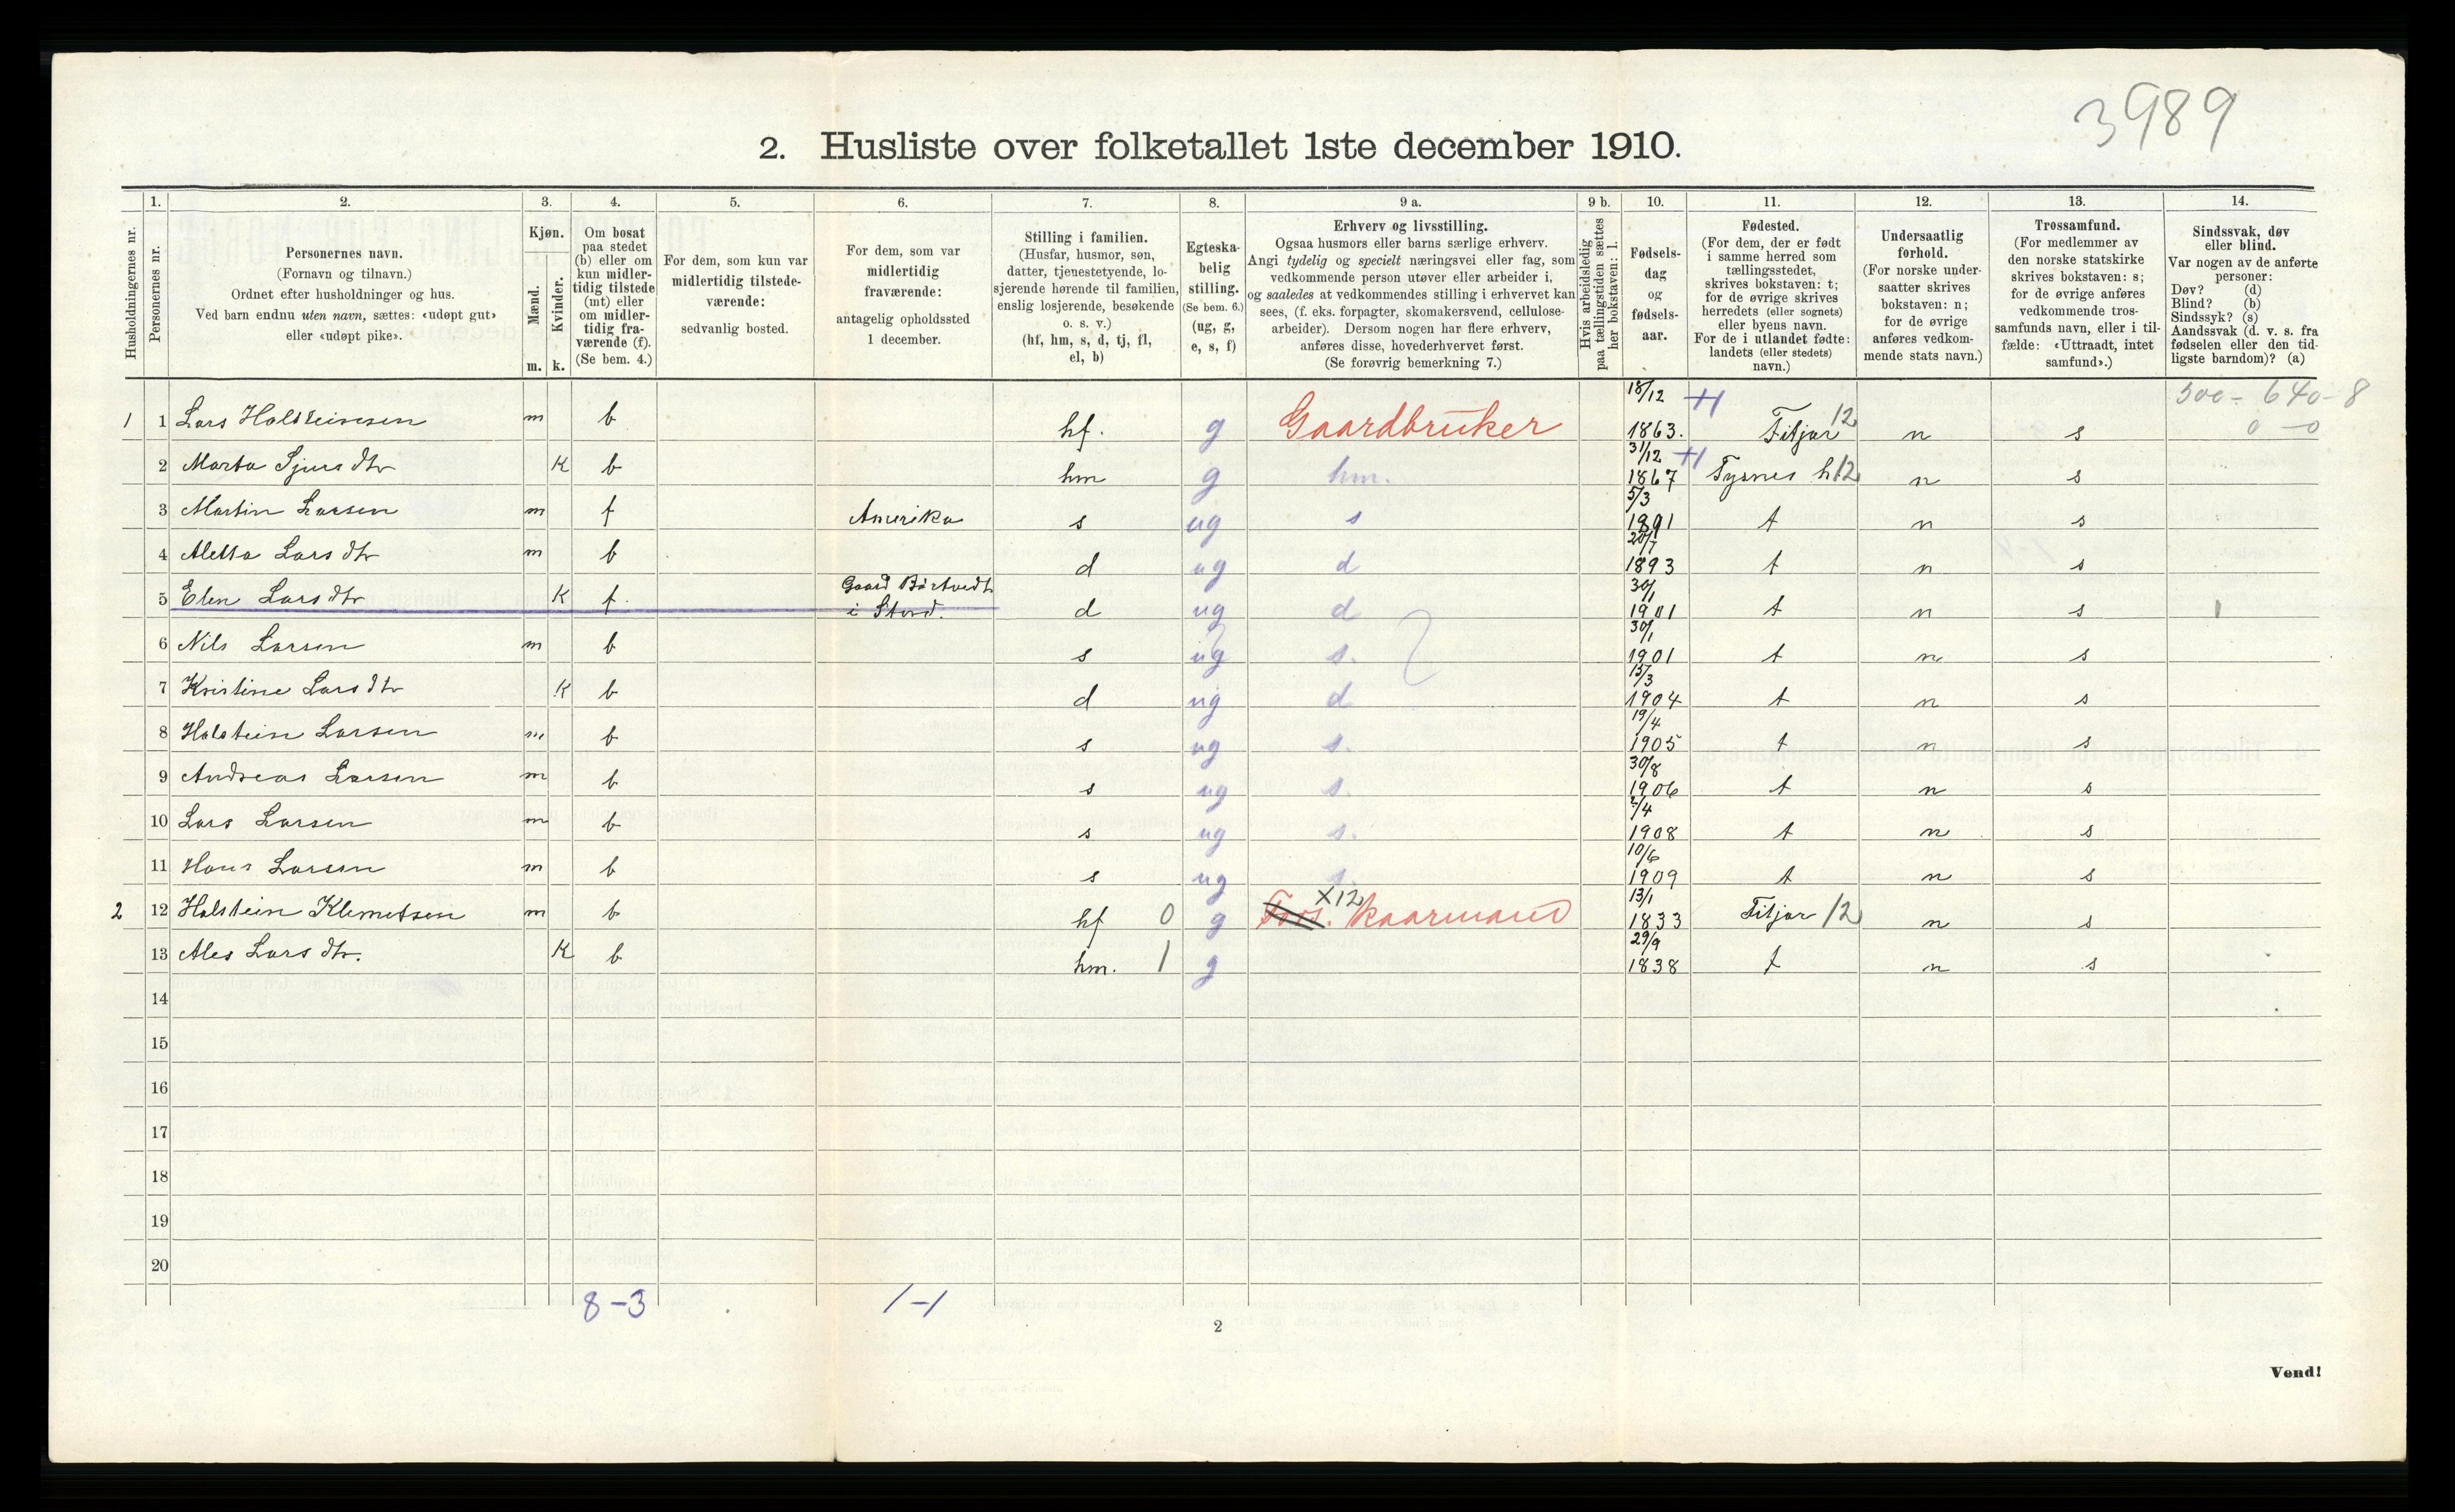 3989
2. Husliste over folketallet 1ste december 1910.
1. 2. 3. 4. 5. 6. 7. 8. 9 a. 9 b. 10. 11. 12. 13. 14.
Husholdningernes nr.
Personernes nr.
Personernes navn.
(Fornavn og tilnavn.)
Ordnet efter husholdninger og hus.
Ved barn endnu uten navn, sættes: «udøpt gut»
eller «udøpt pike».
Kjøn.
Mænd.
Kvinder.
m. k.
Om bosat
paa stedet
(b) eller om
kun midler-
tidig tilstede
(mt) eller
om midler-
tidig fra-
værende (f).
(Se bem. 4.)
For dem, som kun var
midlertidig tilstede-
værende:
sedvanlig bosted.
For dem, som var
midlertidig
fraværende:
antagelig opholdssted
1 december.
Stilling i familien.
(Husfar, husmor, søn,
datter, tjenestetyende, lo-
sjerende hørende til familien,
enslig losjerende, besøkende
o. s. v.)
(hf, hm, s, d, tj, fl,
el, b)
Egteska-
belig
stilling.
(Se bem. 6.)
(ug, g,
e, s, f)
Erhverv og livsstilling.
Ogsaa husmors eller barns særlige erhverv.
Angi tydelig og specielt næringsvei eller fag, som
vedkommende person utøver eller arbeider i,
og saaledes at vedkommendes stilling i erhvervet kan
sees, (f. eks. forpagter, skomakersvend, cellulose-
arbeider). Dersom nogen har flere erhverv,
anføres disse, hovederhvervet først.
(Se forøvrig bemerkning 7.)
Hvis arbeidsledig
paa tællingstiden sættes
her bokstaven: l.
Fødsels-
dag
og
fødsels-
aar.
Fødested.
(For dem, der er født
i samme herred som
tællingsstedet,
skrives bokstaven: t;
for de øvrige skrives
herredets (eller sognets)
eller byens navn.
For de i utlandet fødte:
landets (eller stedets)
navn.)
Undersaatlig
forhold.
(For norske under-
saatter skrives
bokstaven: n;
for de øvrige
anføres vedkom-
mende stats navn.)
Trossamfund.
(For medlemmer av
den norske statskirke
skrives bokstaven: s;
for de øvrige anføres
vedkommende tros-
samfunds navn, eller i til-
fælde: «Uttraadt, intet
samfund».)
Sindssvak, døv
eller blind.
Var nogen av de anførte
personer:
Døv? (d)
Blind? (b)
Sindssyk? (s)
Aandssvak (d. v. s. fra
fødselen eller den tid-
ligste barndom)? (a)
500 - 640 - 8
0 - 0
1 1 Lars Holsteinsen m b hf. g Gaardbruker 18/12 1863. Fitjar 12 n s
2 Marta Sjursdtr K b hm g hm. 31/12 1867 Tysnes h 12 n s
3 Martin Larsen m f Amerika s ug s 5/3 1891 t n s
4 Aletta Larsdtr m b d ug d 20/7 1893 t n s
5 Elen Larsdtr K f. Gaard Børtvedt i Stord. d ug d 30/1 1901 t n s 1
6 Nils Larsen m b s ug s. 30/1 1901 t n s
7 Kristine Larsdtr K b d ug d 15/3 1904 t n s
8 Holstein Larsen m b s ug s. 19/4 1905 t n s
9 Andreas Larsen m b s ug s. 30/8 1906 t n s
10 Lars Larsen m b s ug s. 2/4 1908 t n s
11 Hans Larsen m b s ug s. 10/6 1909 t n s
2 12 Holstein Klemetsen m b hf 0 g X12 Kaarmand 13/1 1833 Fitjar 12 n s
13 Ales Larsdtr. K b hm. 1 g 29/9 1838 t n s
14
15
16
17
18
19
20
8-3 1-1
2
Vend!